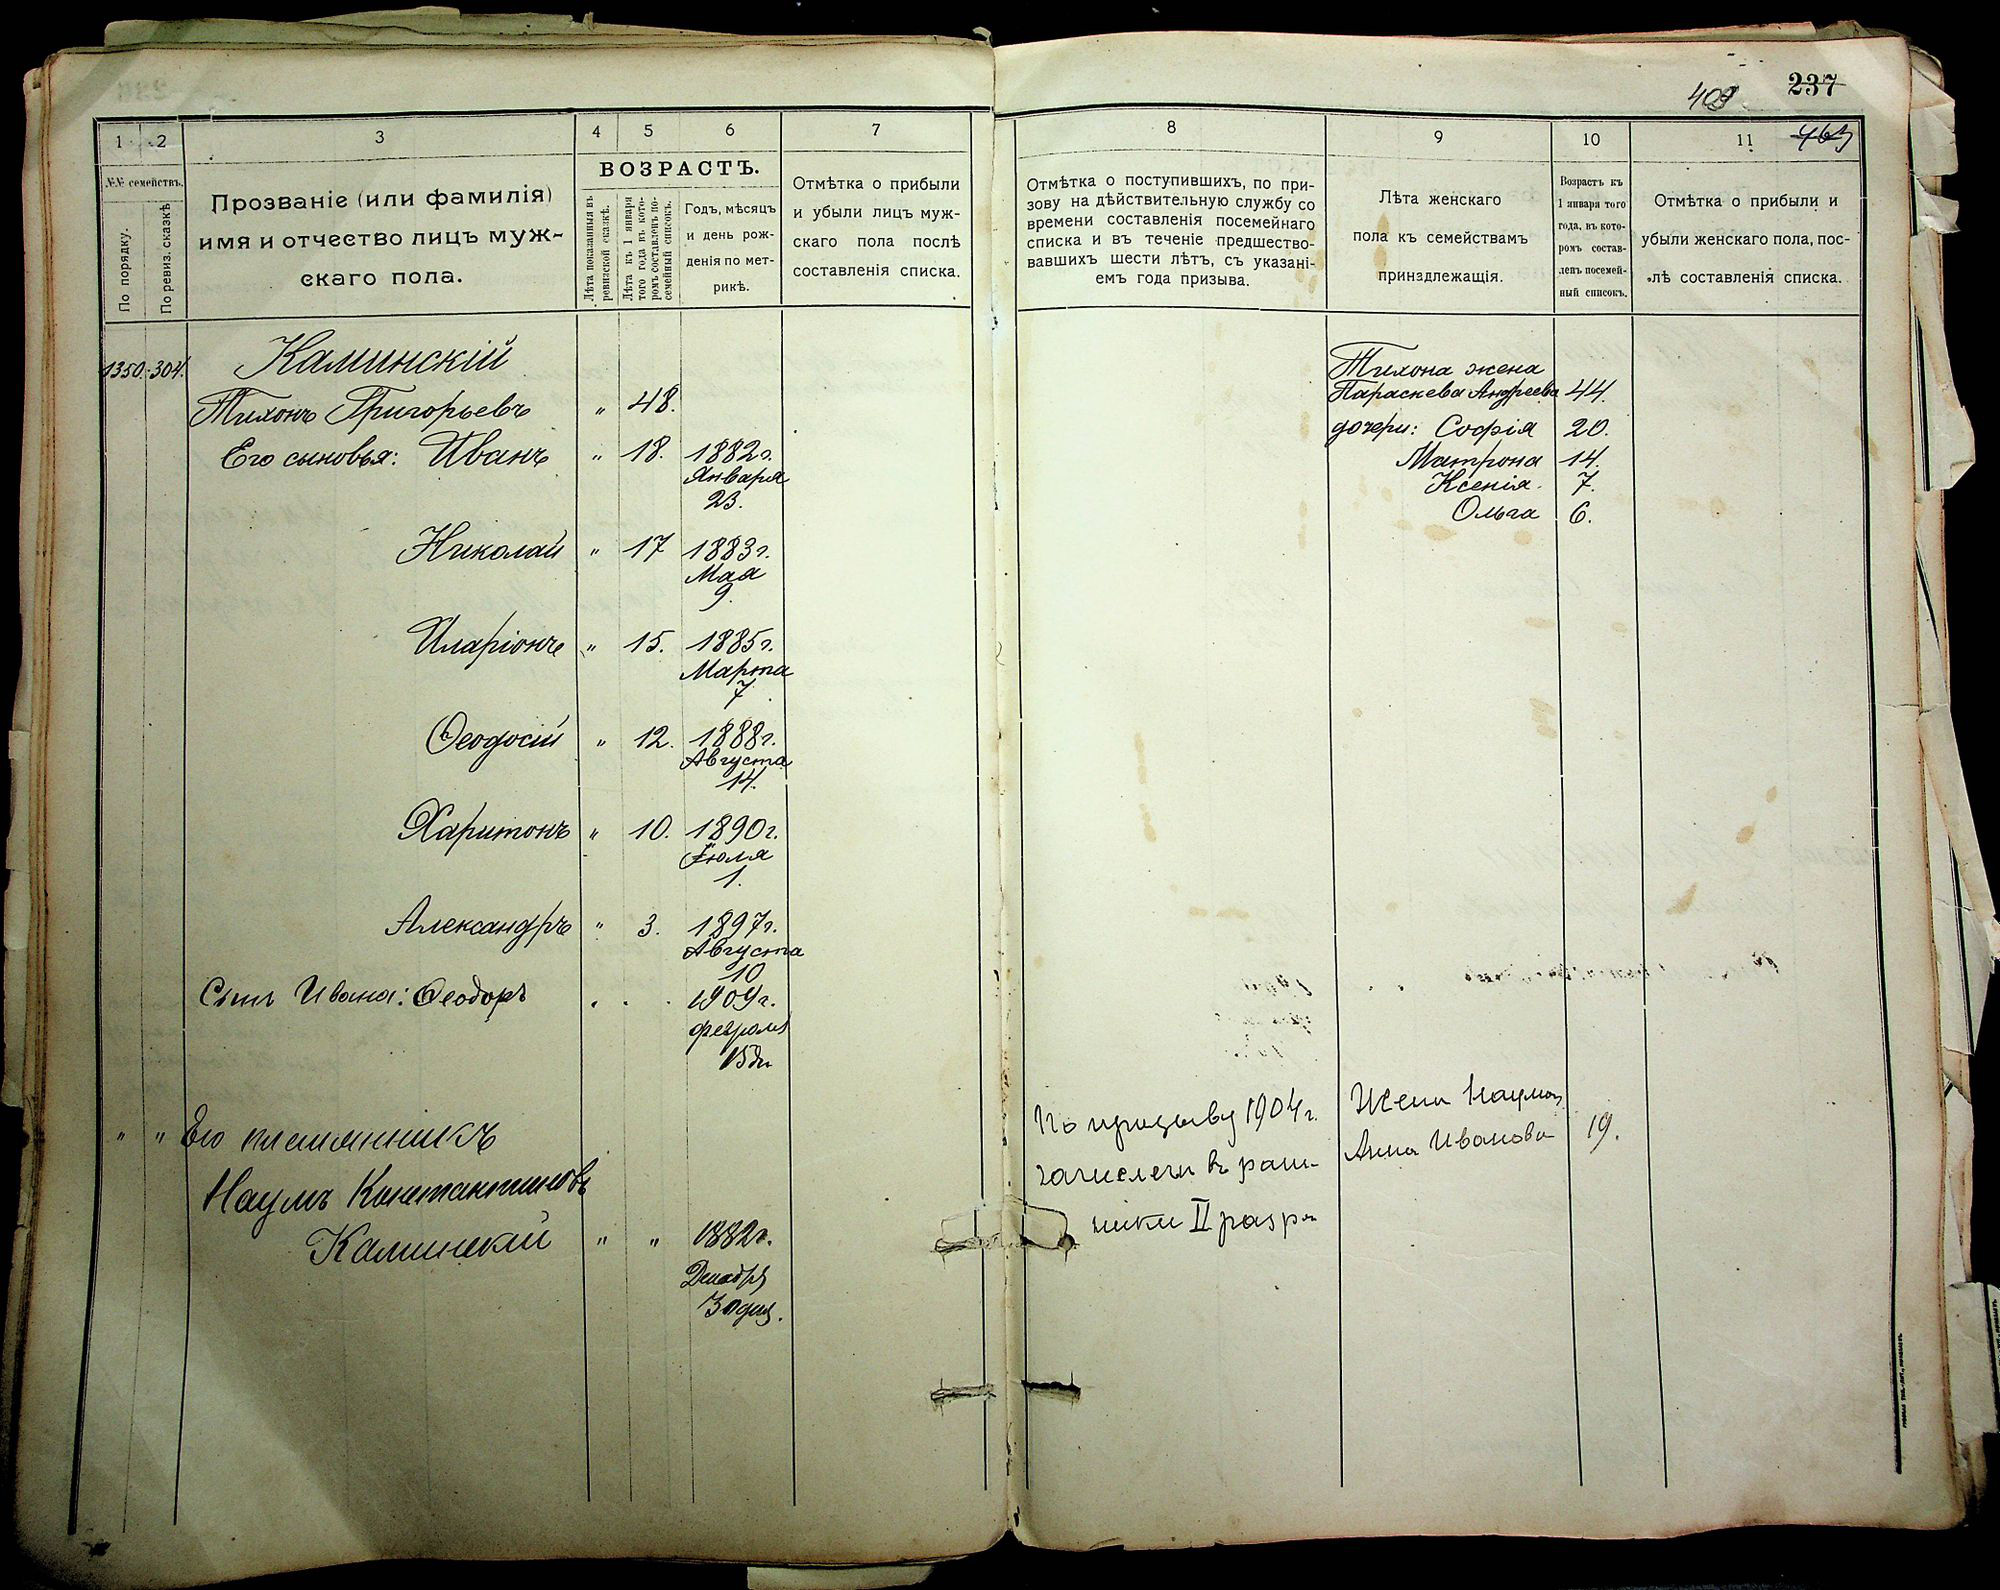 237
409
463
1
2
3
4
5
6
7
8
9
10
11
№№ семействъ.
По порядку.
По ревиз. сказкѣ
Прозваніе (или фамилія)
имя и отчество лицъ муж-
скаго пола.
ВОЗРАСТЪ.
Лѣта показанныя въ
ревизской сказкѣ.
Лѣта къ 1 января
того года въ кото-
ромъ составленъ по-
семейный списокъ.
Годъ, мѣсяцъ
и день рож-
денія по мет-
рикѣ.
Отмѣтка о прибыли
и убыли лицъ муж-
скаго пола послѣ
составленія списка.
Отмѣтка о поступившихъ, по при-
зову на дѣйствительную службу со
времени составленія посемейнаго
списка и въ теченіе предшество-
вавшихъ шести лѣтъ, съ указані-
емъ года призыва.
Лѣта женскаго
пола къ семействамъ
принздлежащія.
Возрастъ къ
1 января того
года, въ кото-
ромъ состав-
ленъ посемей-
ный списокъ.
Отмѣтка о прибыли и
убыли женскаго пола, пос-
лѣ составленія списка.
1350. 304. Каминскій
Тихонъ Григорьевъ " 48.
Его сыновья: Иванъ " 18. 1882г.
Января
23.
Николай " 17 1883г.
Мая
9.
Иларіонъ " 15. 1885г.
Марта
7.
Ѳеодосій " 12. 1888г.
Августа
14.
Харитонъ " 10. 1890г.
Іюля
1.
Александръ " 3. 1897г.
Августа
10
Сынъ Ивана: Ѳеодоръ . . . 1909г.
февраля
15дн
" " Его племянникъ
Наумъ Константиновъ
Каминскій " " 1882г.
Декабря
30дня.
Тихона жена
Параскева Андреева 44.
дочери: Софія 20.
Матрона 14.
Ксенія. 7.
Ольга 6.
По призыву 1904г.
зачисленъ въ рат-
ники II разря
Жена Наума
Анна Иванова 19.